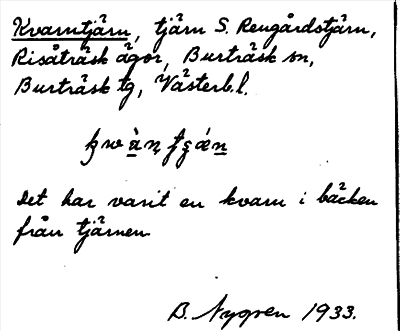 Kvarntjärn, tjärn S. Rengårdstjärn,
Risåträsk ägor, Burträsk sn,
Burträsk tg, Västerb.l.
Det har varit en kvarn i bäcken
från tjärnen
B. Nygren 1933.